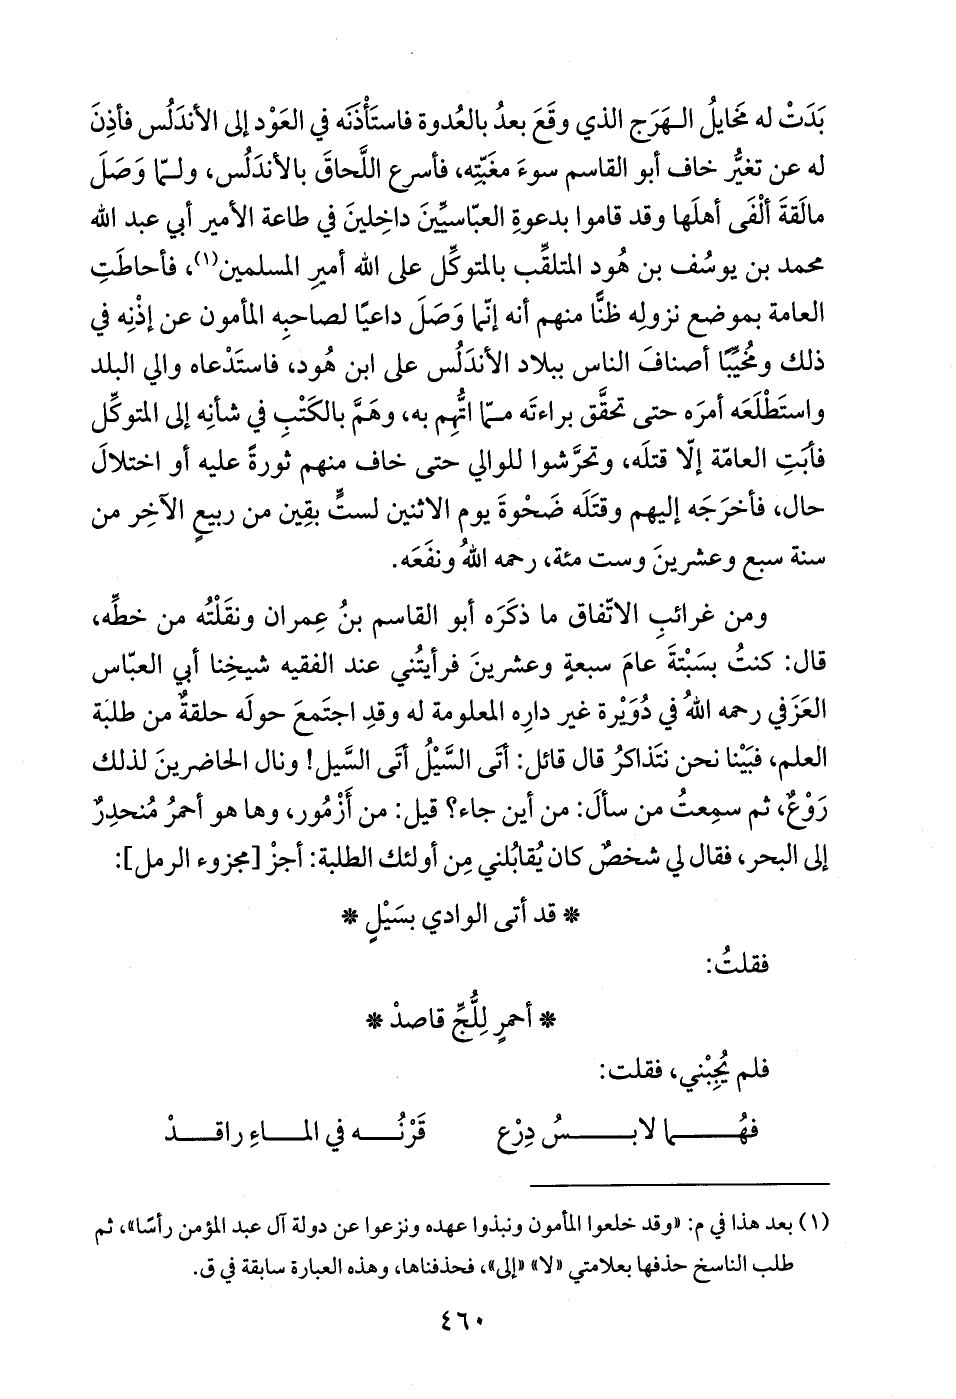 بَدَتْ له مَخايلُ الهَرَج الذي وقَعَ بعدُ بالعُدوة فاستَأْذَنَه في العَوْد إلى الأندَلُس فأذِنَ
له عن تغيُّر خاف أبو القاسم سوءَ مغَبّتِه، فأسرع اللَّحاقَ بالأندَلُس، ولـمّا وَصَلَ
مالَقةَ ألْفَى أهلَها وقد قاموا بدعوةِ العبّاسيِّينَ داخِلينَ في طاعة الأمير أبي عبد الله
محمد بن يوسُف بن هُود المتلقِّب بالمتوكِّل على الله أميرِ المسلمين(١)، فأحاطَتِ
العامة بموضع نزولِه ظنًّا منهم أنه إنّما وَصَلَ داعيًا لصاحبِه المأمون عن إذْنِه في
ذلك ومُخيِّبًا أصنافَ الناس ببلاد الأندَلُس على ابن هُود، فاستَدْعاه والي البلد
واستَطْلَعَه أمرَه حتى تحقَّق براءتَه ممّا اتُّهِم به، وهَمَّ بالكَتْبِ في شأنِه إلى المتوكِّل
فأبَتِ العامّة إلّا قتلَه، وتحرَّشوا للوالي حتى خاف منهم ثورةً عليه أو اختلالَ
حال، فأخرَجَه إليهم وقتَلَه ضَحْوةَ يوم الاثنين لستٍّ بقِين من ربيعٍ الآخِر من
سنة سبع وعشرينَ وست مئة، رحمه اللهُ ونفَعَه.
ومن غرائبِ الاتّفاق ما ذكَرَه أبو القاسم بنُ عِمران ونقَلْتُه من خطِّه،
قال: كنتُ بسَبْتةَ عامَ سبعةٍ وعشرينَ فرأيتُني عند الفقيه شيخِنا أبي العبّاس
العَزَفي رحمه اللهُ في دُوَيْرة غير دارِه المعلومة له وقدِ اجتَمعَ حولَه حلقةٌ من طلبة
العلم، فبَيْنا نحن نتَذاكرُ قال قائل: أتَى السَّيْلُ أتَى السَّيل! ونال الحاضرينَ لذلك
رَوْعٌ، ثم سمِعتُ من سألَ: من أين جاء؟ قيل: من أزْمُور، وها هو أحمرُ مُنحدِرٌ
إلى البحر، فقال لي شخصٌ كان يُقابُلني مِن أولئك الطلبة: أجزْ [مجزوء الرمل]:
* قد أتى الوادي بسَيْلٍ *
فقلتُ:
* أحمرٍ لِلُّجِّ قاصدْ *
فلم يُجِبْني، فقلت:
فهُـــما لابـــسُ دِرْع قَرْنُـــه في المـــاءِ راقـــدْ
(١) بعد هذا في م: «وقد خلعوا المأمون ونبذوا عهده ونزعوا عن دولة آل عبد المؤمن رأسًا»، ثم
طلب الناسخ حذفها بعلامتي «لا» «إلى»، فحذفناها، وهذه العبارة سابقة في ق.
٤٦٠